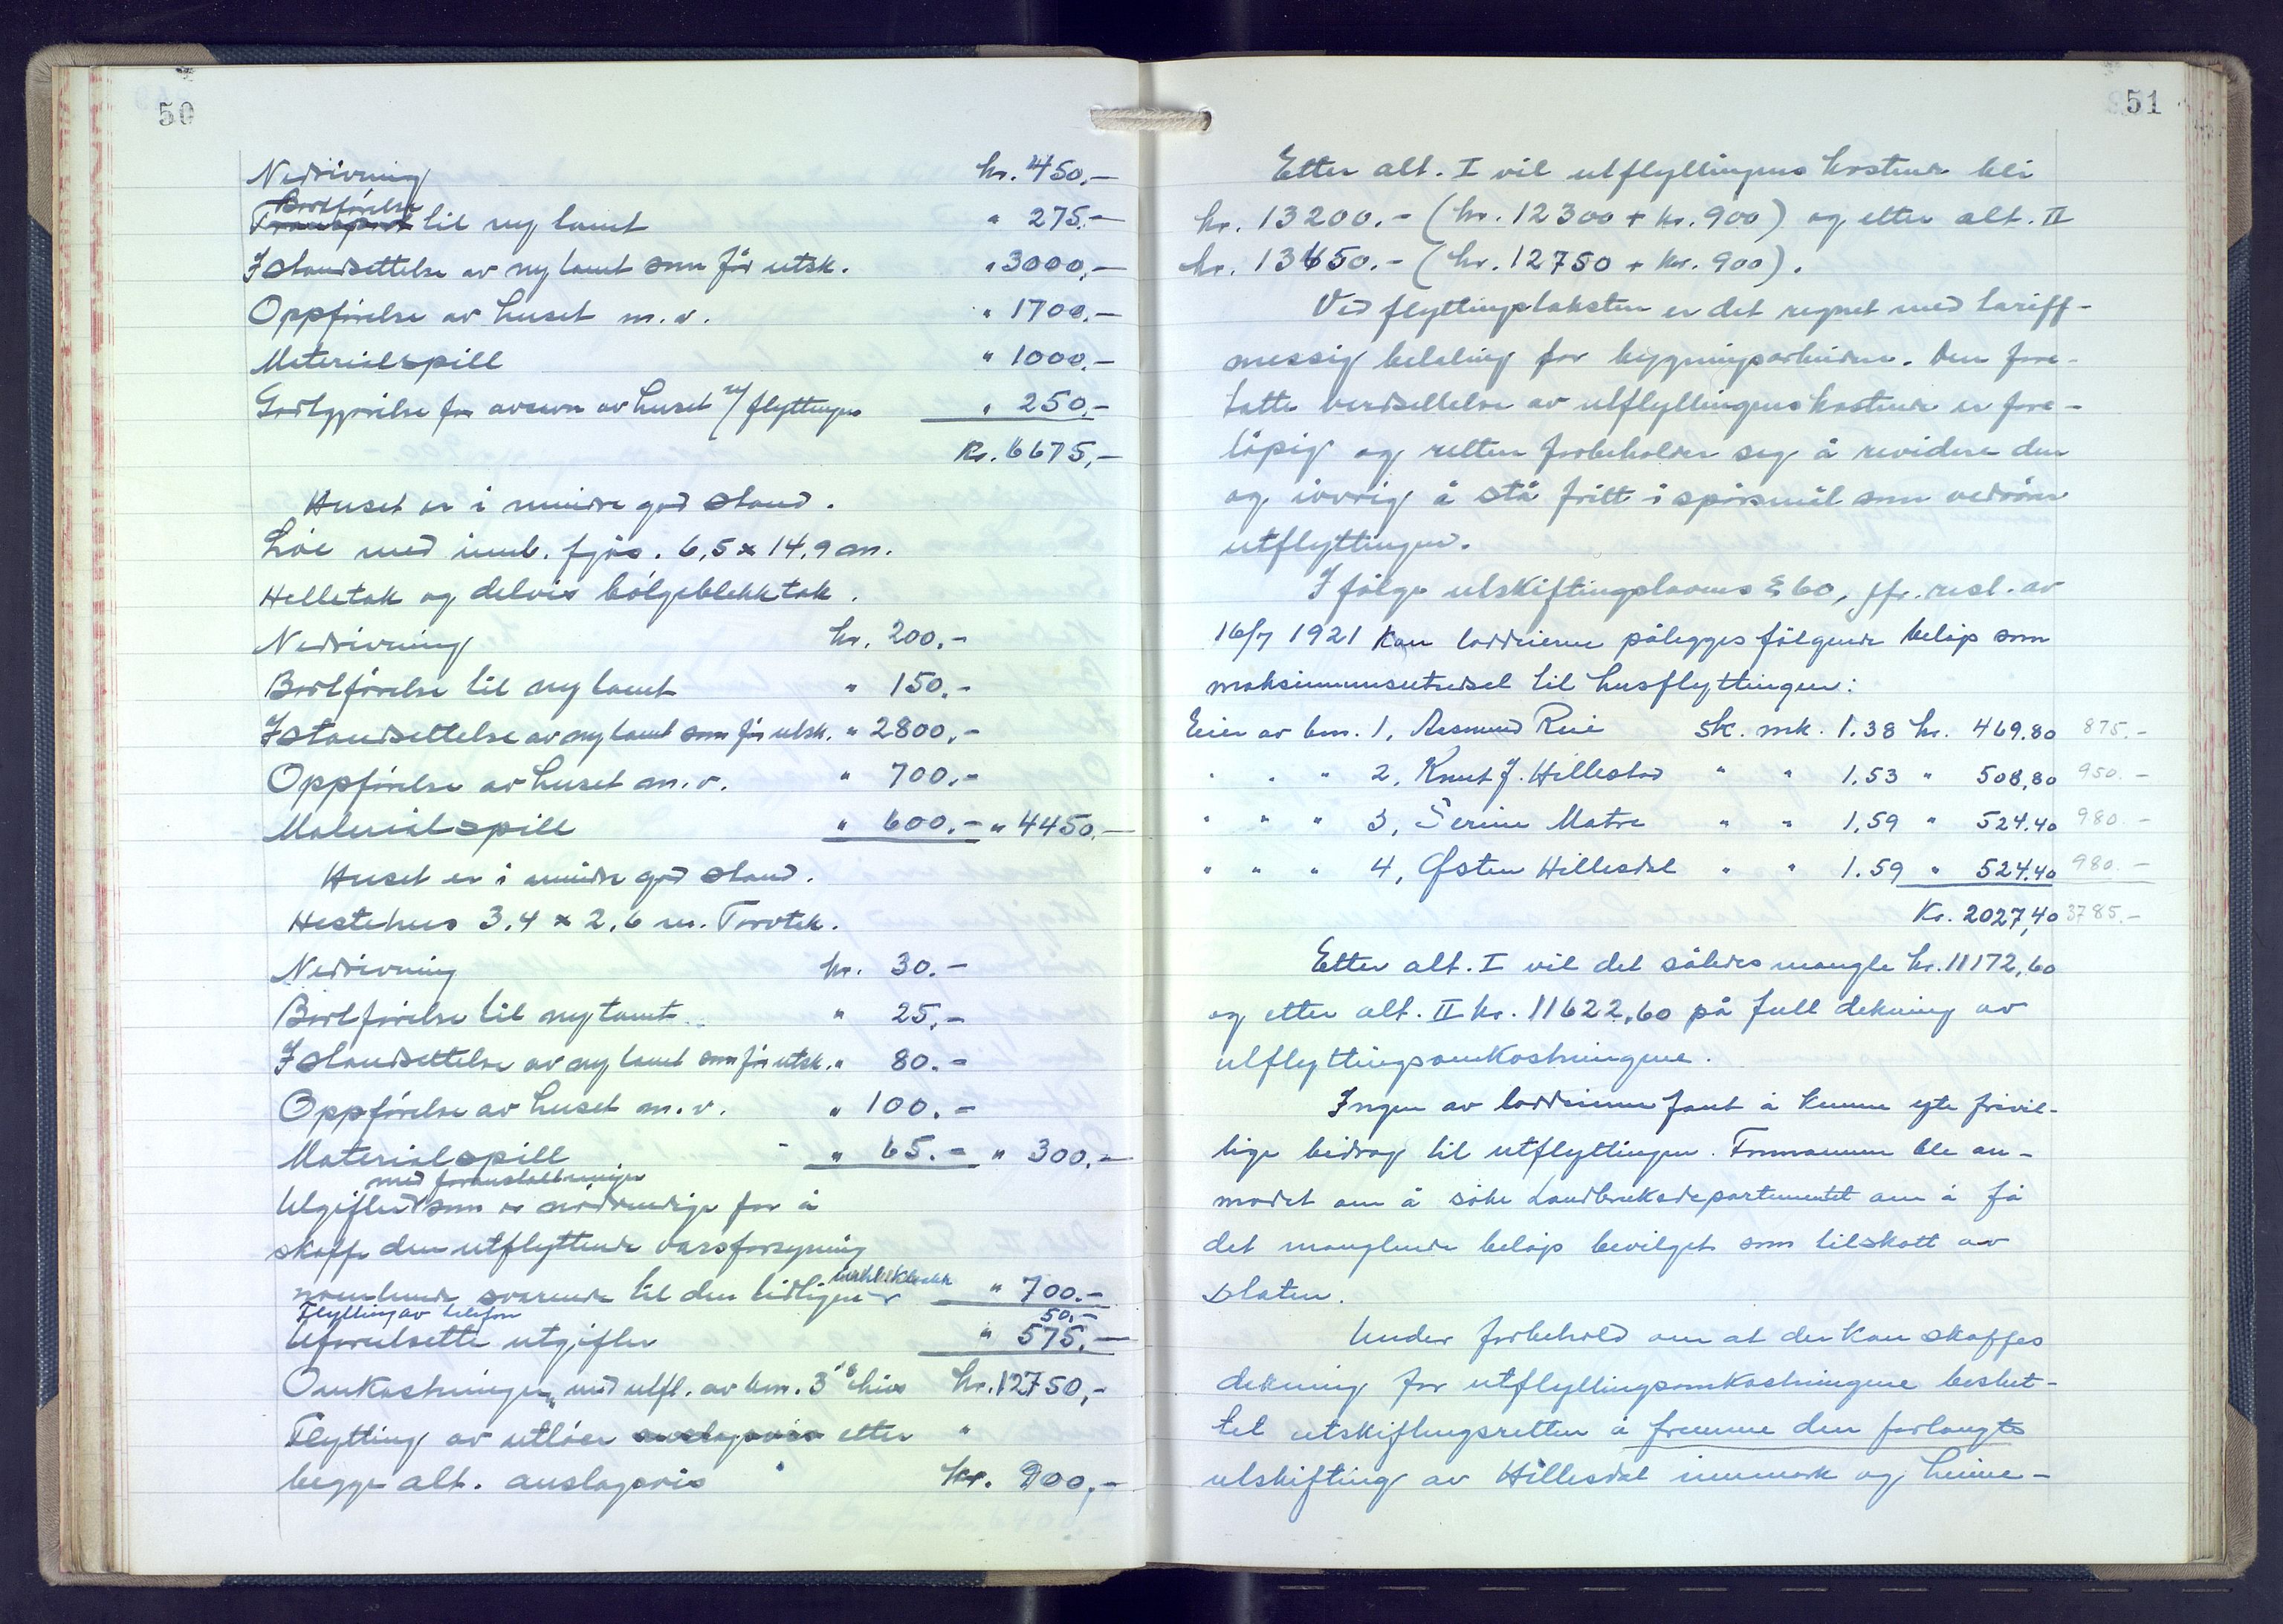 50
Nedrivning kr. 450,-
Bortførelse
Transport til ny tomt " 275.-
Istandsettelse av ny tomt som før utsk. " 3000,-
Oppførelse av huset m.v. " 1700,-
Materialspill " 1000,-
Godtgjørelse for avsavn av huset v/ flyttingen " 250,-
Kr. 6675,-
Huset er i mindre god stand.
Løe med innb. fjøs. 6,5 x 14,9 m.
Helletak og delvis bølgeblekktak.
Nedrivning kr. 200,-
Bortførelse til ny tomt " 150.-
Istandsettelse av ny tomt som før utsk. " 2800,-
Oppførelse av huset m.v. " 700,-
Materialspill " 600.- " 4450.-
Huset er i mindre god stand.
Hestehus 3,4 x 2,6 m. Torvtak.
Nedrivning kr. 30.-
Bortførelse til ny tomt " 25,-
Istandsettelse av ny tomt som før utsk. " 80.-
Oppførelse av huset m.v. " 100.-
Materialspill " 65.- " 300.-
med foranstaltninger
Utgifter som er nødvendige for å
skaffe den utflyttende vassforsyning
noenlunde svarende til den tidligere " 700.-
Flytting av telefon 50,-
Uforutsette utgifter " 575.-
Omkostningen med utfl. av bnr. 3's hus kr. 12750,-
Flytting av utløer anslagsvis etter "
begge alt. anslagsvis kr. 900,-
51
Etter alt. I vil utflyttingens kostende bli
kr. 13200.- (kr. 12300 + kr. 900) og etter alt. II
kr. 13650.- (kr. 12750 + kr. 900).
Ved flyttingstaksten er det regnet med tariff-
messig betaling for bygningsarbeidere. Den fore-
tatte verdsettelse av utflyttingens kostende er fore-
løpig og retten forbeholder seg å revidere den
og iøvrig å stå fritt i spørsmål som vedrører
utflyttingen.
I følge utskiftingslovens § 60, jfr. resl. av
16/7 1921 kan loddeierne pålegges følgende beløp som
maksimumsutredsel til husflyttingen:
Eier av bnr. 1, Aasmund Rui sk. mk. 1.38 kr. 469.80 875.-
" " " 2, Knut J. Hillestad " " 1,53 " 508,80 950.-
" " " 3, Serine Matre " " 1,59 " 524.40 980.-
" " " 4, Østen Hillesdal " " 1.59 " 524.40 980.-
Kr. 2027,40 3785.-
Etter alt. I vil det således mangle kr. 11172,60
og etter alt. II kr. 11622,60 på full dekning av
utflyttingsomkostningene.
Ingen av loddeierne fant å kunne yte frivil-
lige bidrag til utflyttingen. Formannen ble an-
modet om å søke Landbruksdepartementet om å få
det manglende beløp bevilget som tilskott av
staten.
Under forbehold om at der kan skaffes
dekning for utflyttingsomkostningene beslut-
tet utskiftingsretten å fremme den forlangte
utskifting av Hillesdal innmark og heime-